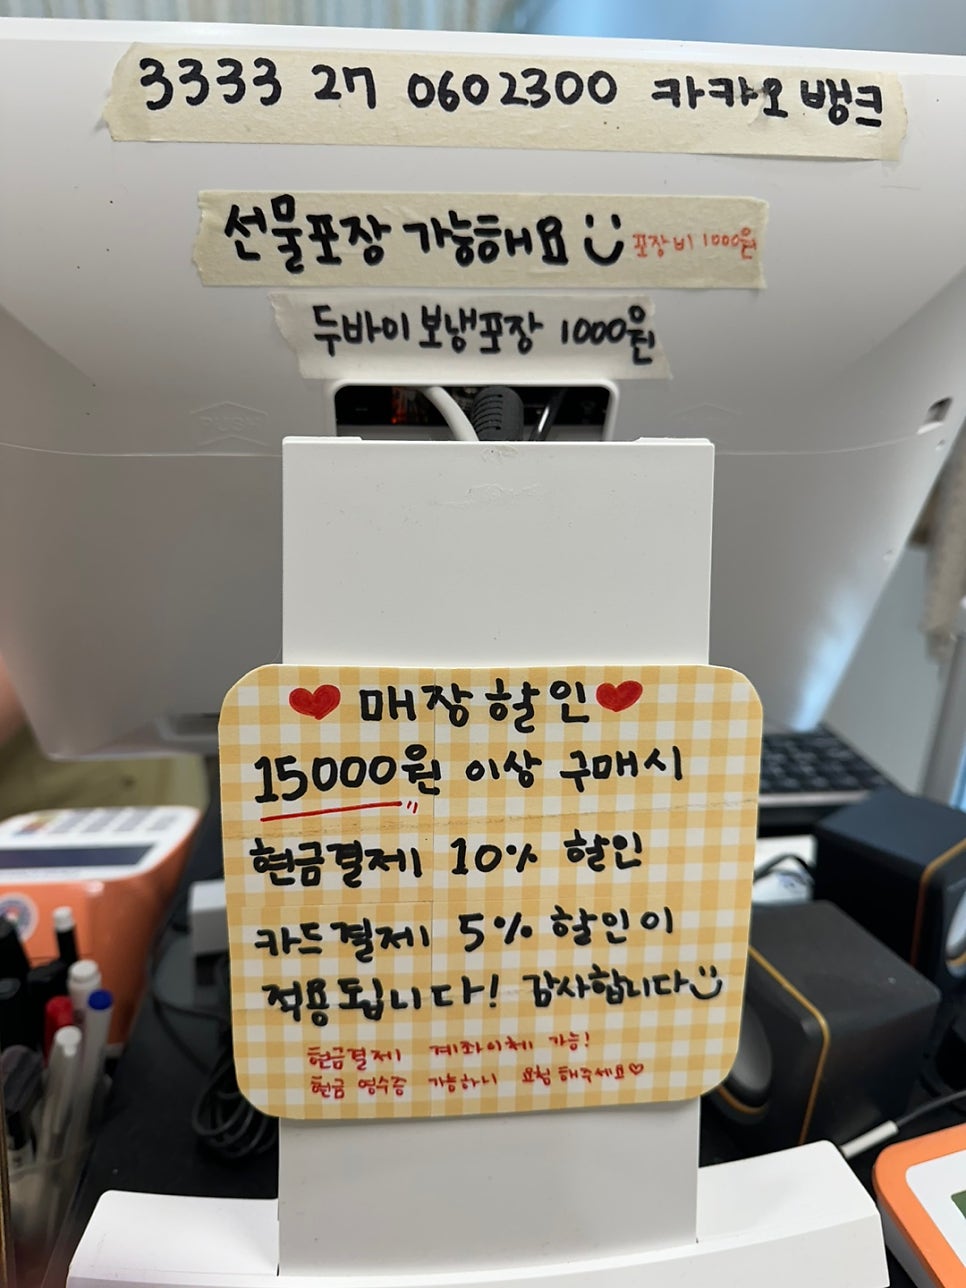 3333 27 0602300 카카오 뱅크
선물포장 가능해요 포장비 1000원
두바이 보냉포장 1000원
매장 할인
15000원 이상 구매시
현금결제 10% 할인
카드결제 5% 할인이
적용됩니다! 감사합니다
현금결제 계좌이체 가능!
현금 영수증 가능하니 요청 해주세요♡